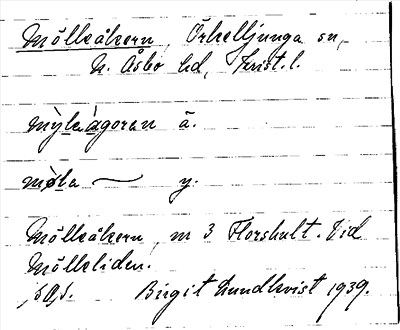 Mölleåkern, Örkelljunga sn,
N. Åsbo hd, Krist. l.
mỳla àgoran ä.
møla ⁓ y.
Mölleåkern, nr 3 Florshult. Vid
Mölleliden.
Birgit Lundkvist 1939.